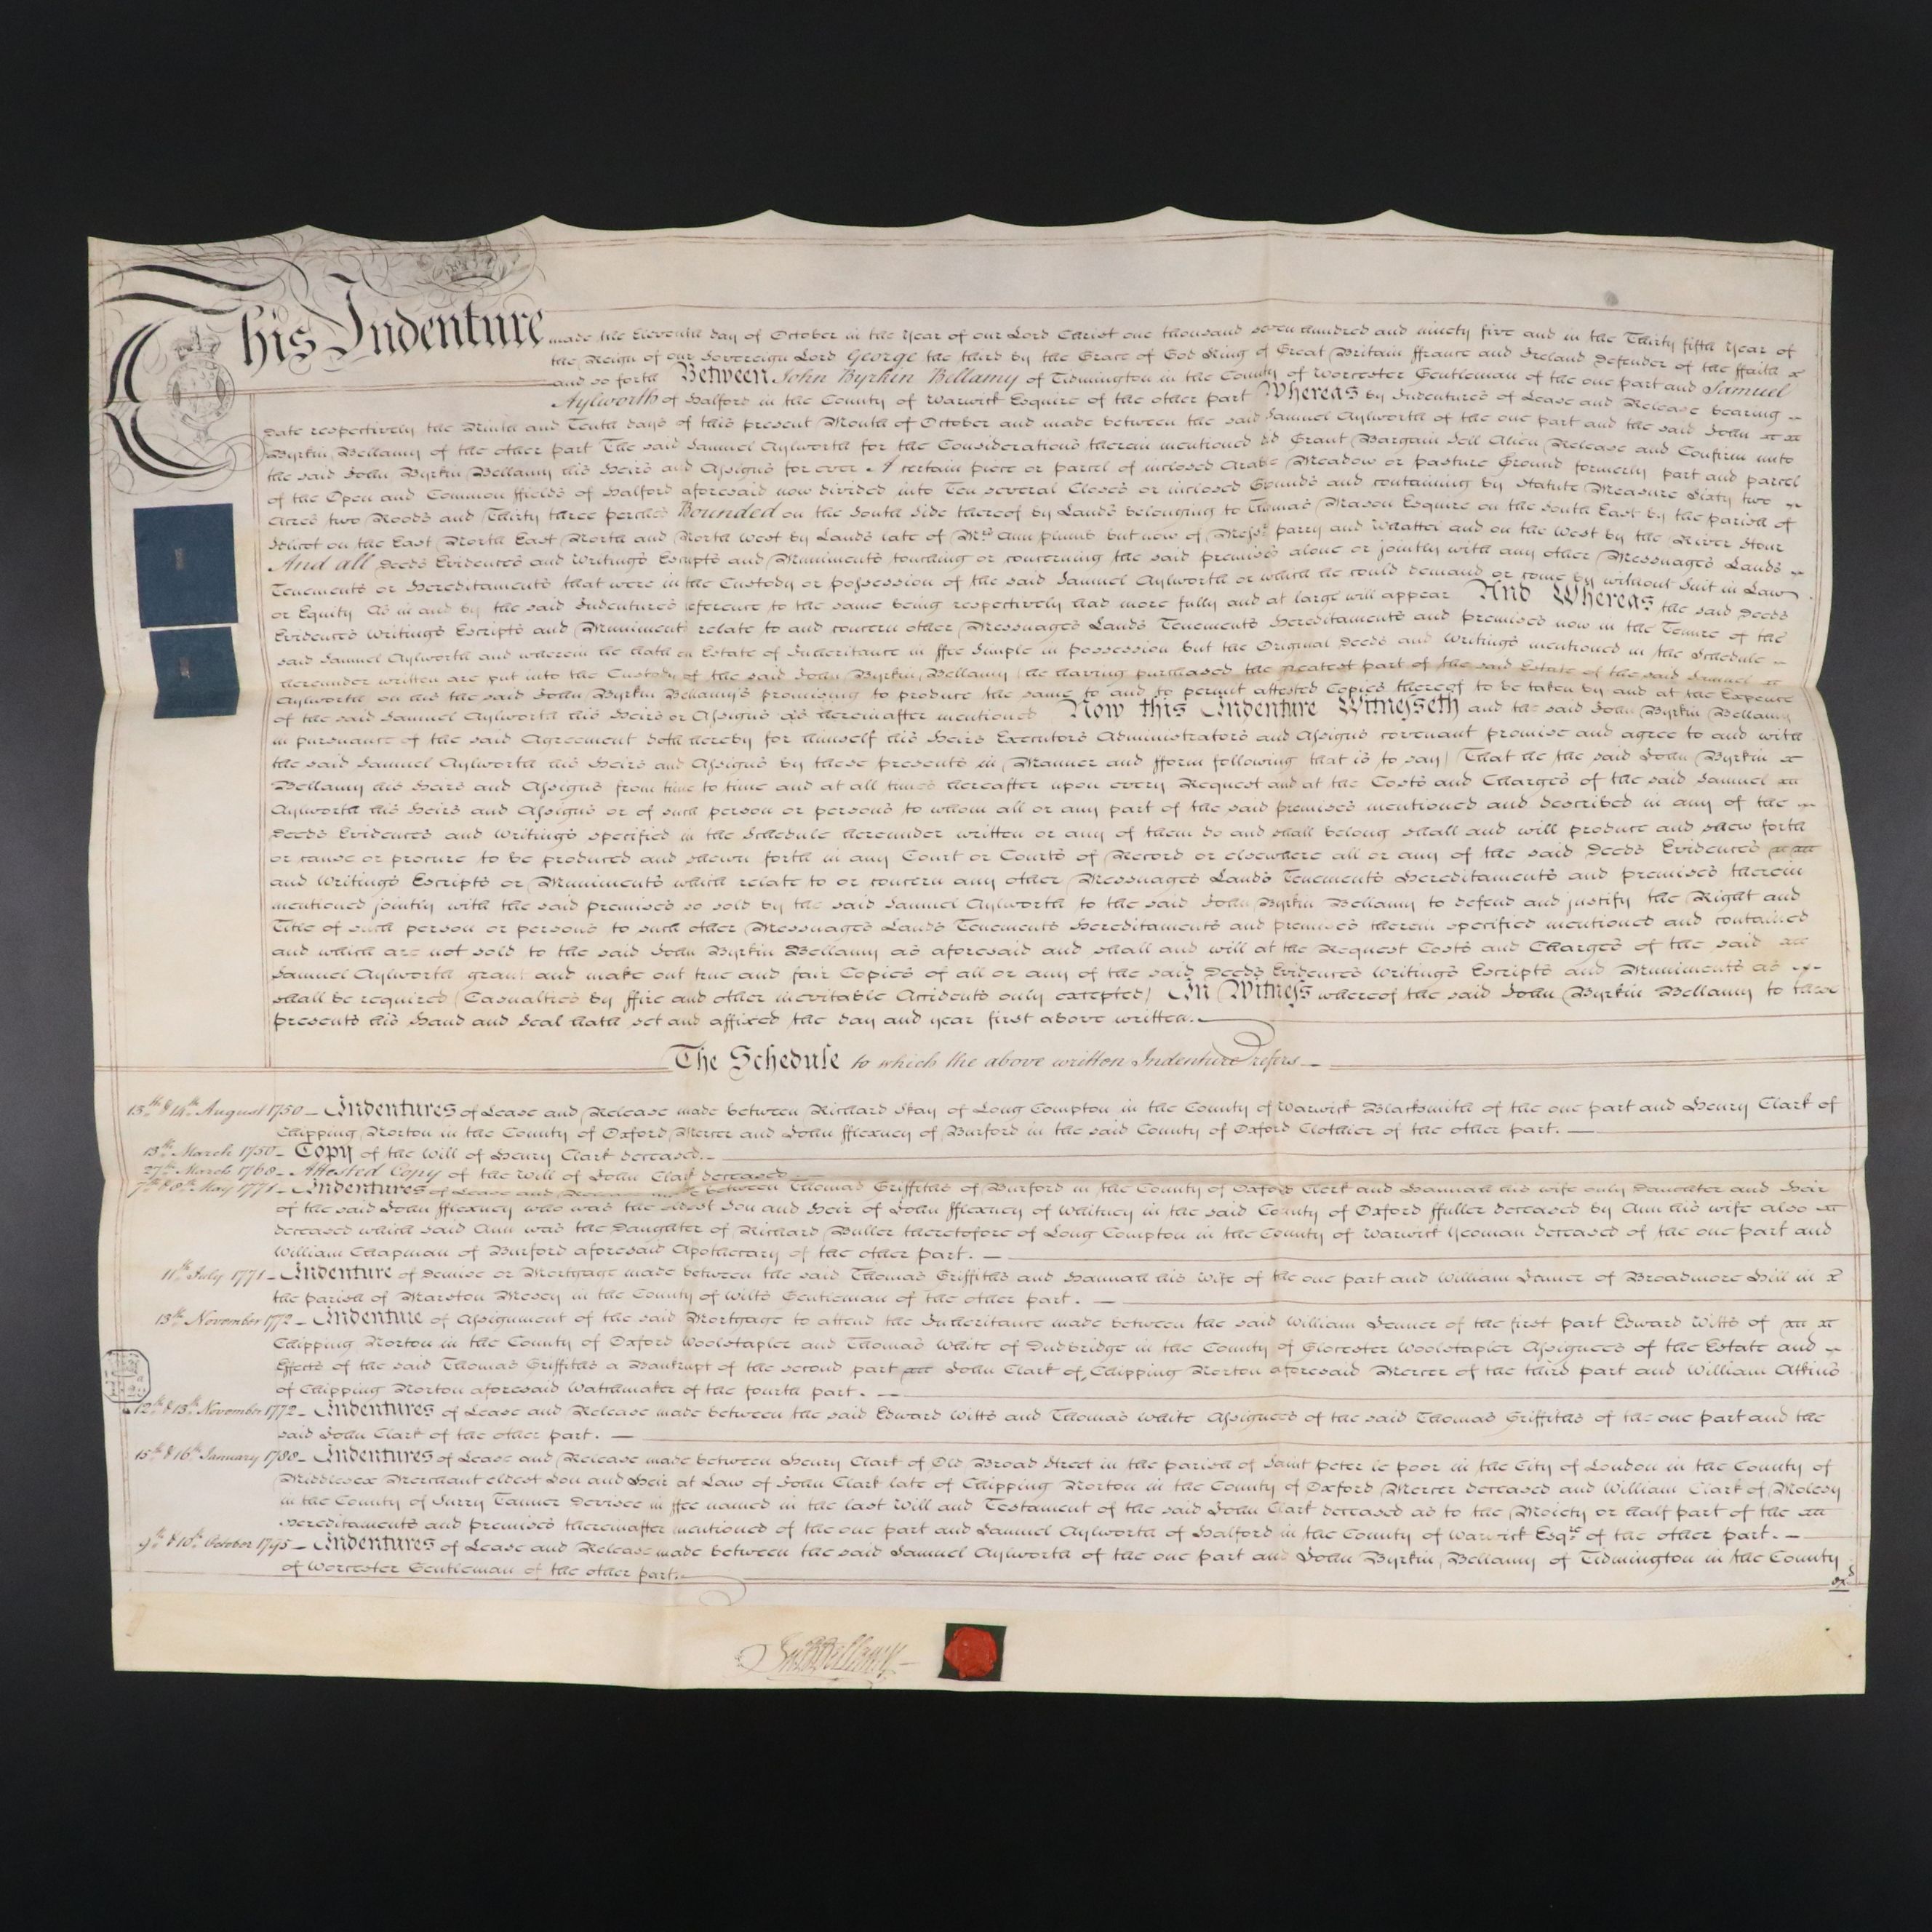 This Indenture made the Eleventh day of October in the Year of our Lord Christ one thousand seven hundred and ninety five and in the Thirty fifth Year of
the Reign of our Sovereign Lord George the third by the Grace of God King of Great Britain ffrance and Ireland Defender of the ffaith
and so forth Between John Byrkin Bellamy of Tidmington in the County of Worcester Gentleman of the one part and Samuel
Aylworth of Halford in the County of Warwick Esquire of the other part Whereas by Indentures of Lease and Release bearing
date respectively the Ninth and Tenth days of this present Month of October and made between the said Samuel Aylworth of the one part and the said John
Byrkin Bellamy of the other part The said Samuel Aylworth for the Considerations therein mentioned did Grant Bargain Sell Alien Release and Confirm unto
the said John Byrkin Bellamy his Heirs and Assigns for ever A certain piece or parcel of inclosed Arable Meadow or pasture Ground formerly part and parcel
of the Open and Common ffields of Halford aforesaid now divided into Ten several Closes or inclosed Grounds and containing by Statute Measure Sixty two
Acres two Roods and Thirty three perches Bounded on the South Side thereof by Lands belonging to Thomas Mason Esquire on the South East by the parish of
Idlicot on the East North East North and North West by Lands late of Mrs Ann plumb but now of Messrs parry and and on the West by the River Stour
And all Deeds Evidences and Writings Escripts and Muniments touching or concerning the said premises alone or jointly with any other Messuages Lands
Tenements or Hereditaments that were in the Custody or possession of the said Samuel Aylworth or which he could demand or come by without Suit in Law
or Equity As in and by the said Indentures reference to the same being respectively had more fully and at large will appear And Whereas the said Deeds
Evidences Writings Escripts and Muniments relate to and concern other Messuages Lands Tenements Hereditaments and premises now in the Tenure of the
said Samuel Aylworth and wherein he hath an Estate of Inheritance in ffee Simple in possession but the Original Deeds and Writings mentioned in the Schedule
hereunder written are put into the Custody of the said John Byrkin Bellamy (he having purchased the greatest part of the said Estate of the said Samuel
Aylworth on his the said John Byrkin Bellamy's promising to produce the same to and to permit attested Copies thereof to be taken by and at the Expence
of the said Samuel Aylworth his Heirs or Assigns as hereinafter mentioned Now this Indenture Witnesseth and the said John Byrkin Bellamy
in pursuance of the said Agreement doth hereby for himself his Heirs Executors Administrators and Assigns covenant promise and agree to and with
the said Samuel Aylworth his Heirs and Assigns by these presents in Manner and fform following that is to say) That he the said John Byrkin
Bellamy his Heirs and Assigns from time to time and at all times hereafter upon every Request and at the Costs and Charges of the said Samuel
Aylworth his Heirs and Assigns or of such person or persons to whom all or any part of the said premises mentioned and described in any of the
Deeds Evidences and Writings specified in the Schedule hereunder written or any of them do and shall belong shall and will produce and shew forth
or cause or procure to be produced and shewn forth in any Court or Courts of Record or elsewhere all or any of the said Deeds Evidences
and Writings Escripts or Muniments which relate to or concern any other Messuages Lands Tenements Hereditaments and premises therein
mentioned jointly with the said premises so sold by the said Samuel Aylworth to the said John Byrkin Bellamy to defend and justify the Right and
Title of such person or persons to such other Messuages Lands Tenements Hereditaments and premises therein specified mentioned and contained
and which are not sold to the said John Byrkin Bellamy as aforesaid and shall and will at the Request Costs and Charges of the said
Samuel Aylworth grant and make out true and fair Copies of all or any of the said Deeds Evidences Writings Escripts and Muniments as
shall be required (Casualties by ffire and other inevitable Accidents only excepted) In Witness whereof the said John Byrkin Bellamy to these
presents his Hand and Seal hath set and affixed the day and year first above written.
The Schedule to which the above written Indenture refers
13th & 14th August 1750 Indentures of Lease and Release made between Richard of Long Compton in the County of Warwick Blacksmith of the one part and Henry Clark of
Chipping Norton in the County of Oxford Mercer and John fflexney of Burford in the said County of Oxford Clothier of the other part.
13th March 1750 Copy of the Will of Henry Clark deceased.
27th March 1768 Attested Copy of the Will of John Clark deceased
7th & 8th May 1771 Indentures of Lease and Release made between Thomas Griffiths of Burford in the County of Oxford Clerk and Hannah his wife only Daughter and Heir
of the said John fflexney who was the eldest Son and Heir of John fflexney of Whitney in the said County of Oxford ffuller deceased by Ann his wife also
deceased which said Ann was the Daughter of Richard Buller theretofore of Long Compton in the County of Warwick Yeoman deceased of the one part and
William Chapman of Burford aforesaid Apothecary of the other part.
11th July 1771 Indenture of Demise or Mortgage made between the said Thomas Griffiths and Hannah his Wife of the one part and William Jenner of Broadmore Hill in
the parish of Marston Mesey in the County of Wilts Gentleman of the other part.
13th November 1772 Indenture of Assignment of the said Mortgage to attend the Inheritance made between the said William Jenner of the first part Edward Witts of
Chipping Norton in the County of Oxford Woolstapler and Thomas White of Dudbridge in the County of Glocester Woolstapler Assignees of the Estate and
Effects of the said Thomas Griffiths a Bankrupt of the second part John Clark of Chipping Norton aforesaid Mercer of the third part and William Atkins
of Chipping Norton aforesaid Watchmaker of the fourth part.
12th & 13th November 1772 Indentures of Lease and Release made between the said Edward Witts and Thomas White Assignees of the said Thomas Griffiths of the one part and the
said John Clark of the other part.
15th & 16th January 1788 Indentures of Lease and Release made between Henry Clark of Old Broad Street in the parish of Saint Peter le poor in the City of London in the County of
Middlesex Merchant eldest Son and Heir at Law of John Clark late of Chipping Norton in the County of Oxford Mercer deceased and William Clark of Molesy
in the County of Surry Tanner Devisee in ffee named in the last Will and Testament of the said John Clark deceased as to the Moiety or half part of the
Hereditaments and premises thereinafter mentioned of the one part and Samuel Aylworth of Halford in the County of Warwick Esqre of the other part.
9th & 10th October 1795 Indentures of Lease and Release made between the said Samuel Aylworth of the one part and John Byrkin Bellamy of Tidmington in the County
of Worcester Gentleman of the other part.
Jn B Bellamy